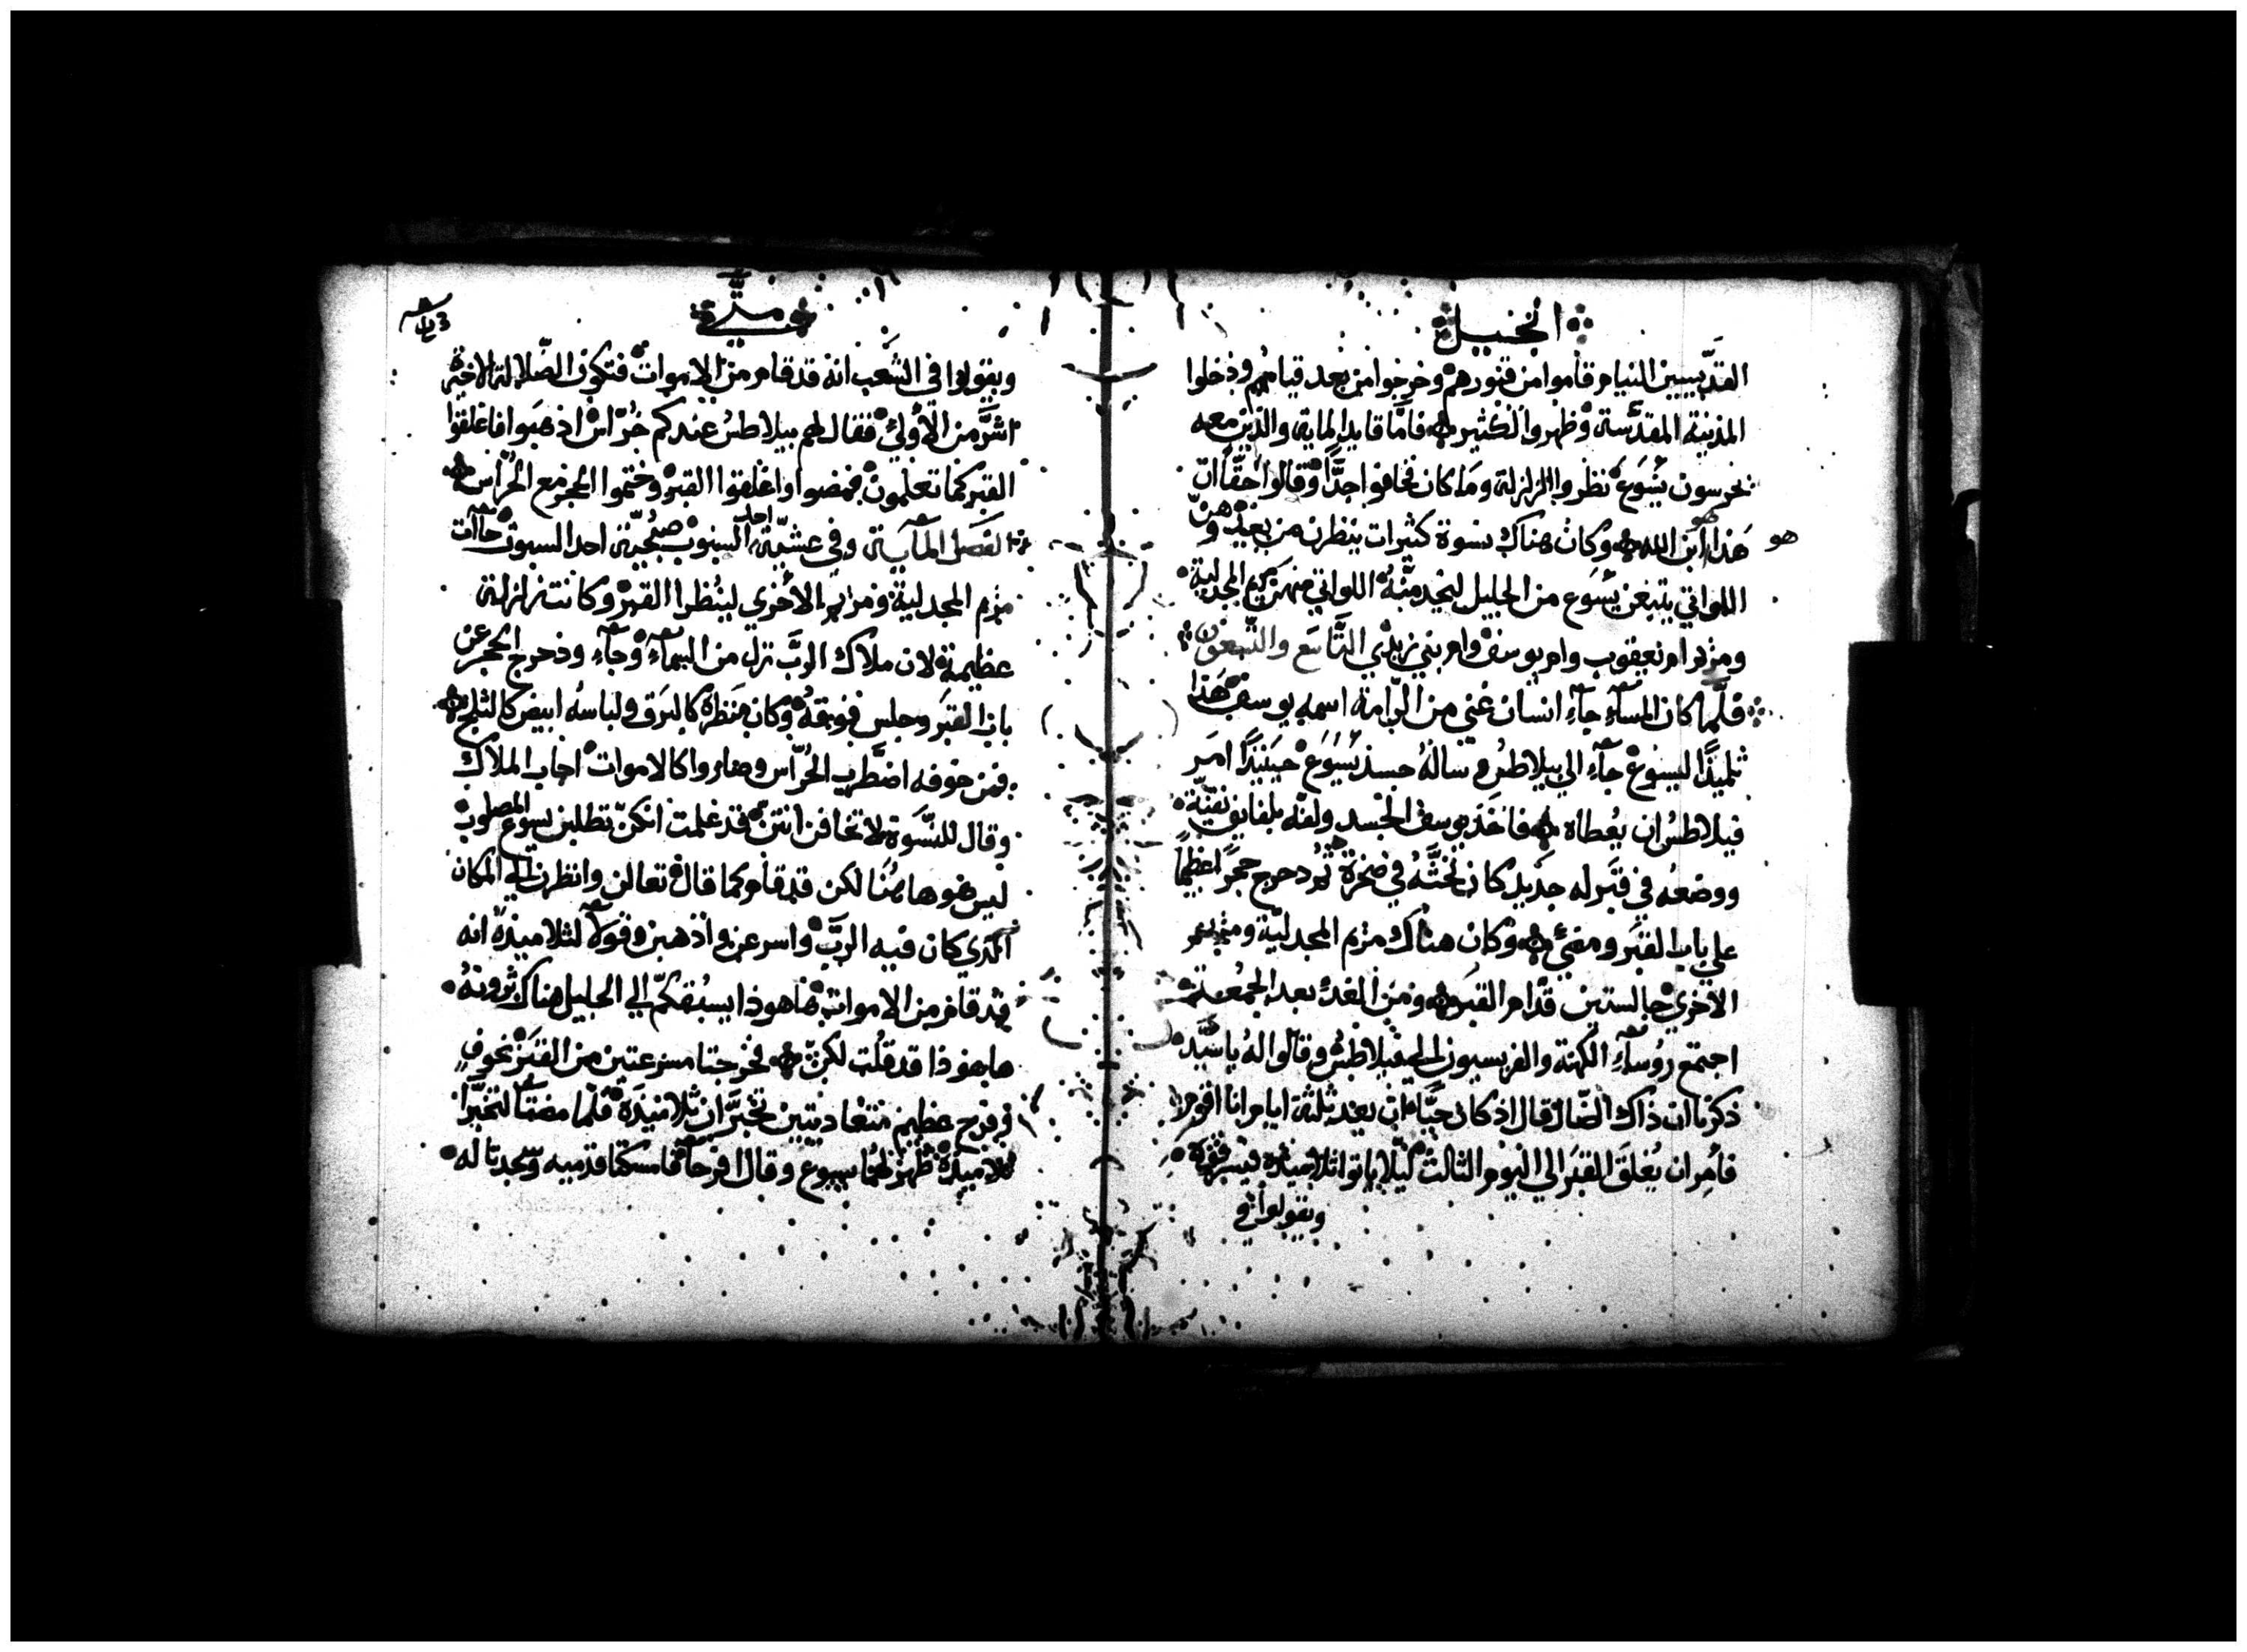 انجيل
القديسين النيام قاموا من قبورهم وخرجوا من بعد قيامهم ودخلوا
المدينة المقدسة وظهروا لكثير فاما قايد الماية والذين معه
يحرسون يسوع نظروا الزلزلة وما كان فخافوا جدًا وقالوا حقًا ان
هذا هو ابن الله وكان هناك نسوة كثيرات ينظرن من بعيد وهن
هو
اللواتي يتبعن يسوع من الجليل ليخدمنه اللواتي منهن مريم المجدلية
ومريم ام يعقوب وام يوسف وام بني زبدي التاسع والتسعون
فلما كان المساء جاء انسان غني من الرامة اسمه يوسف هذا
تلميذًا ليسوع جاء الي بيلاطس وساله جسد يسوع حينيذًا امر
فيلاطس ان يعطاه فاخذ يوسف الجسد ولفه بلفايف نقية
ووضعه في قبر له جديد كان نحته في صخرة ثم دحرج حجرًا عظيمًا
علي باب القبر ومضي وكان هناك مريم المجدلية ومريم
الاخري جالستين قدام القبر ومن الغد بعد الجمعة
اجتمع روساء الكهنة والفريسيون الي فيلاطس وقالوا له يا سيد
ذكرنا ان ذاك الضال قال اذ كان حيًا ان بعد ثلثة ايام انا اقوم
فأمر ان يغلق القبر الي اليوم الثالث ليلا ياتوا تلاميذه فيسرقونه
ويقولوا في
متي
ويقولوا في الشعب انه قد قام من الاموات فتكون الضلالة الاخرة
اشر من الأولي فقال لهم بيلاطس عندكم حراس اذهبوا فاغلقوا
القبر كما تعلمون فمضوا واغلقوا القبر وختموا الحجر مع الحراس
الفصل الماية وفي عشية احد السبوت صبحية احد السبوت جآت
مريم المجدلية ومريم الأخري لينظرا القبر وكانت زلزلة
عظيمة لان ملاك الرب نزل من السماء وجاء ودحرج الحجر عن
باب القبر وجلس فوقه وكان منظره كالبرق ولباسه ابيض كالثلج
فمن خوفه اضطرب الحراس وصاروا كالاموات اجاب الملاك
وقال للنسوة لا تخافن انتن قد علمت انكن تطلبن يسوع المصلوب
ليس هو هاهنا لكن قد قام كما قال تعالن وانظرن الي المكان
الذي كان فيه الرب واسرعن واذهبن وقولا لتلاميذه انه
قد قام من الاموات هاهوذا يسبقكم الي الجليل هناك ترونه
هاهوذا قد قلت لكن فخرجتا مسرعتين من القبر بخوف
وفرح عظيم متغاديتين تخبران تلاميذه فلما مضتا لتخبرا
تلاميذه ظهر لهما يسوع وقال افرحا فامسكتا قدميه وسجدتا له